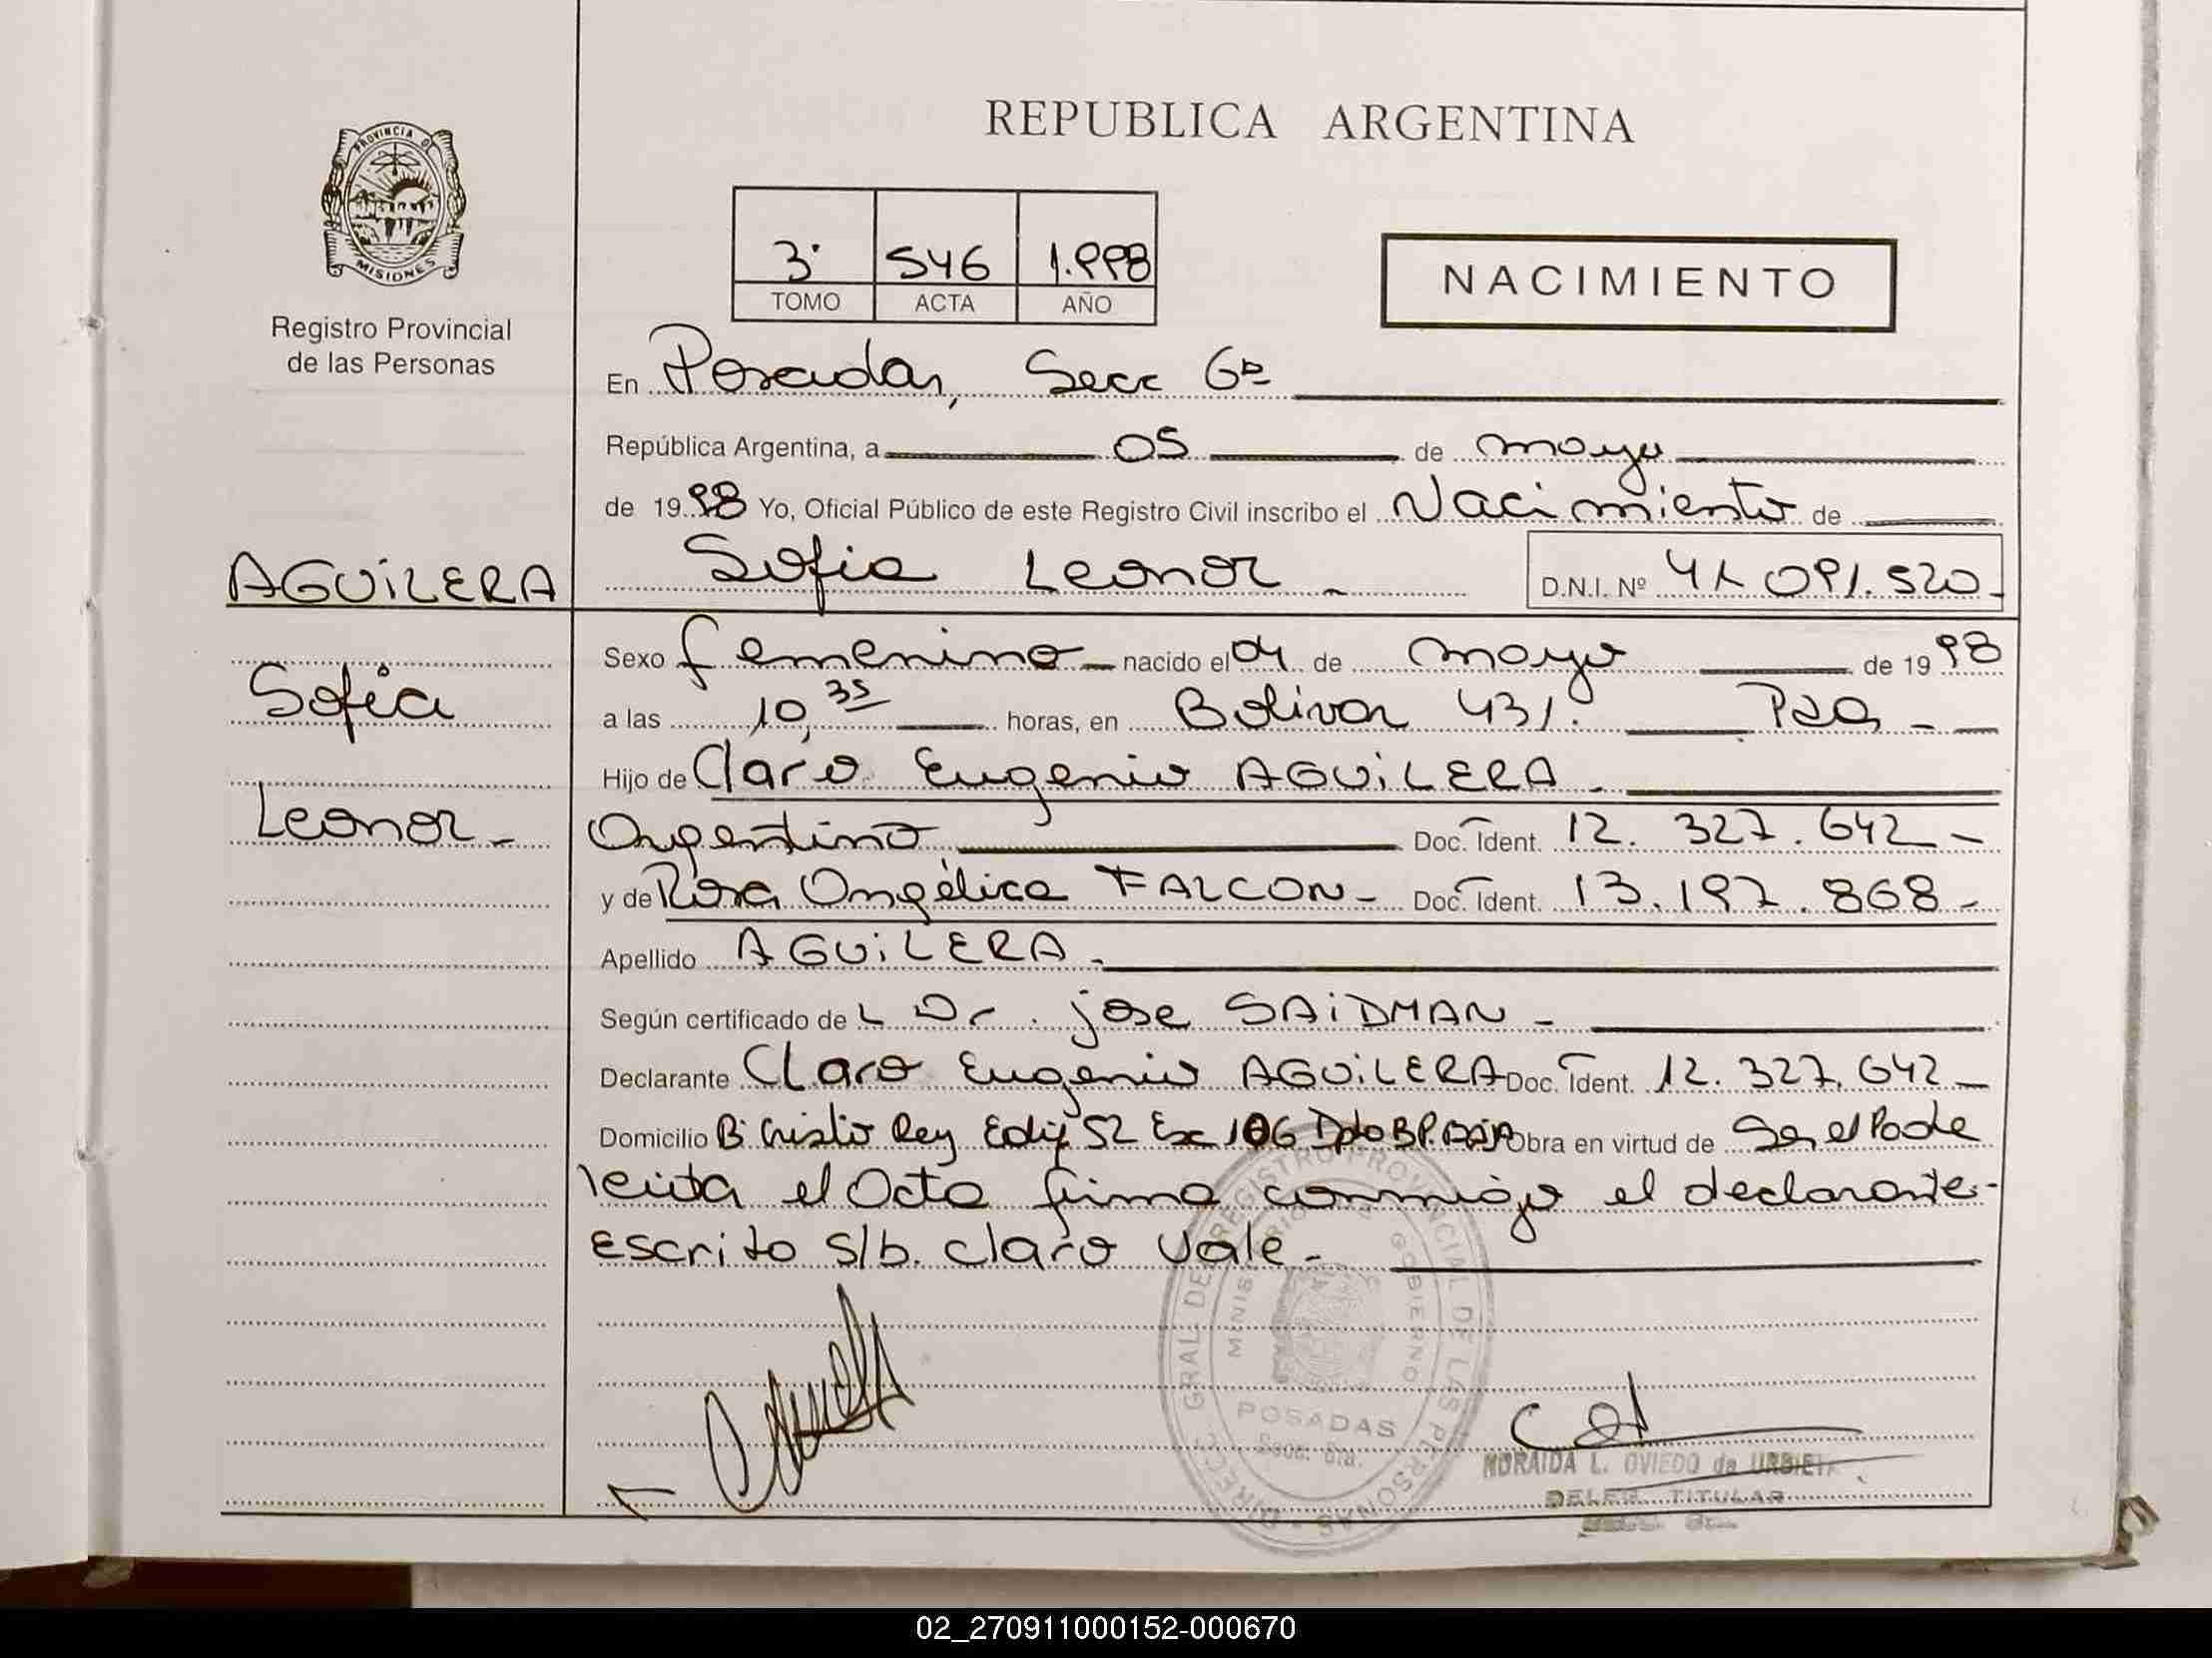 REPUBLICA ARGENTINA
PROVINCIA DE
MISIONES
Registro Provincial
de las Personas
3º 546 1.998
TOMO ACTA AÑO
NACIMIENTO
En Posadas, Secc 6ª
República Argentina, a 05 de mayo
de 1998 Yo, Oficial Público de este Registro Civil inscribo el Nacimiento de
AGUiLERA
Sofía
Leonor -
Sofia Leonor - D.N.I. Nº 41.091.520 -
Sexo femenino - nacido el 04 de mayo de 1998
a las 10,35 horas, en Bolivar 431. Pdas -
Hijo de Claro Eugenio AGUiLERA -
Argentino Doc. Ident. 12.327.642 -
y de Rosa Angélica FALCON - Doc. Ident. 13.197.868 -
Apellido AGUiLERA -
Según certificado de L Dr. jose SAiDMAN -
Declarante Claro Eugenio AGUiLERA Doc. Ident. 12.327.642 -
Domicilio Bº Cristo Rey Edif 52 Esc 106 Dpto B Obra en virtud de Ser el Padre
leida el Acta firma conmigo el declarante -
Escrito s/b. claro Vale -
DIREC. GRAL DE REGISTRO PROVINCIAL DE LAS PERSONAS
MINISTERIO DE GOBIERNO
POSADAS
Secc. 6ta.
NORAIDA L. OVIEDO de URBIETA
DELEG. TITULAR
02_270911000152-000670